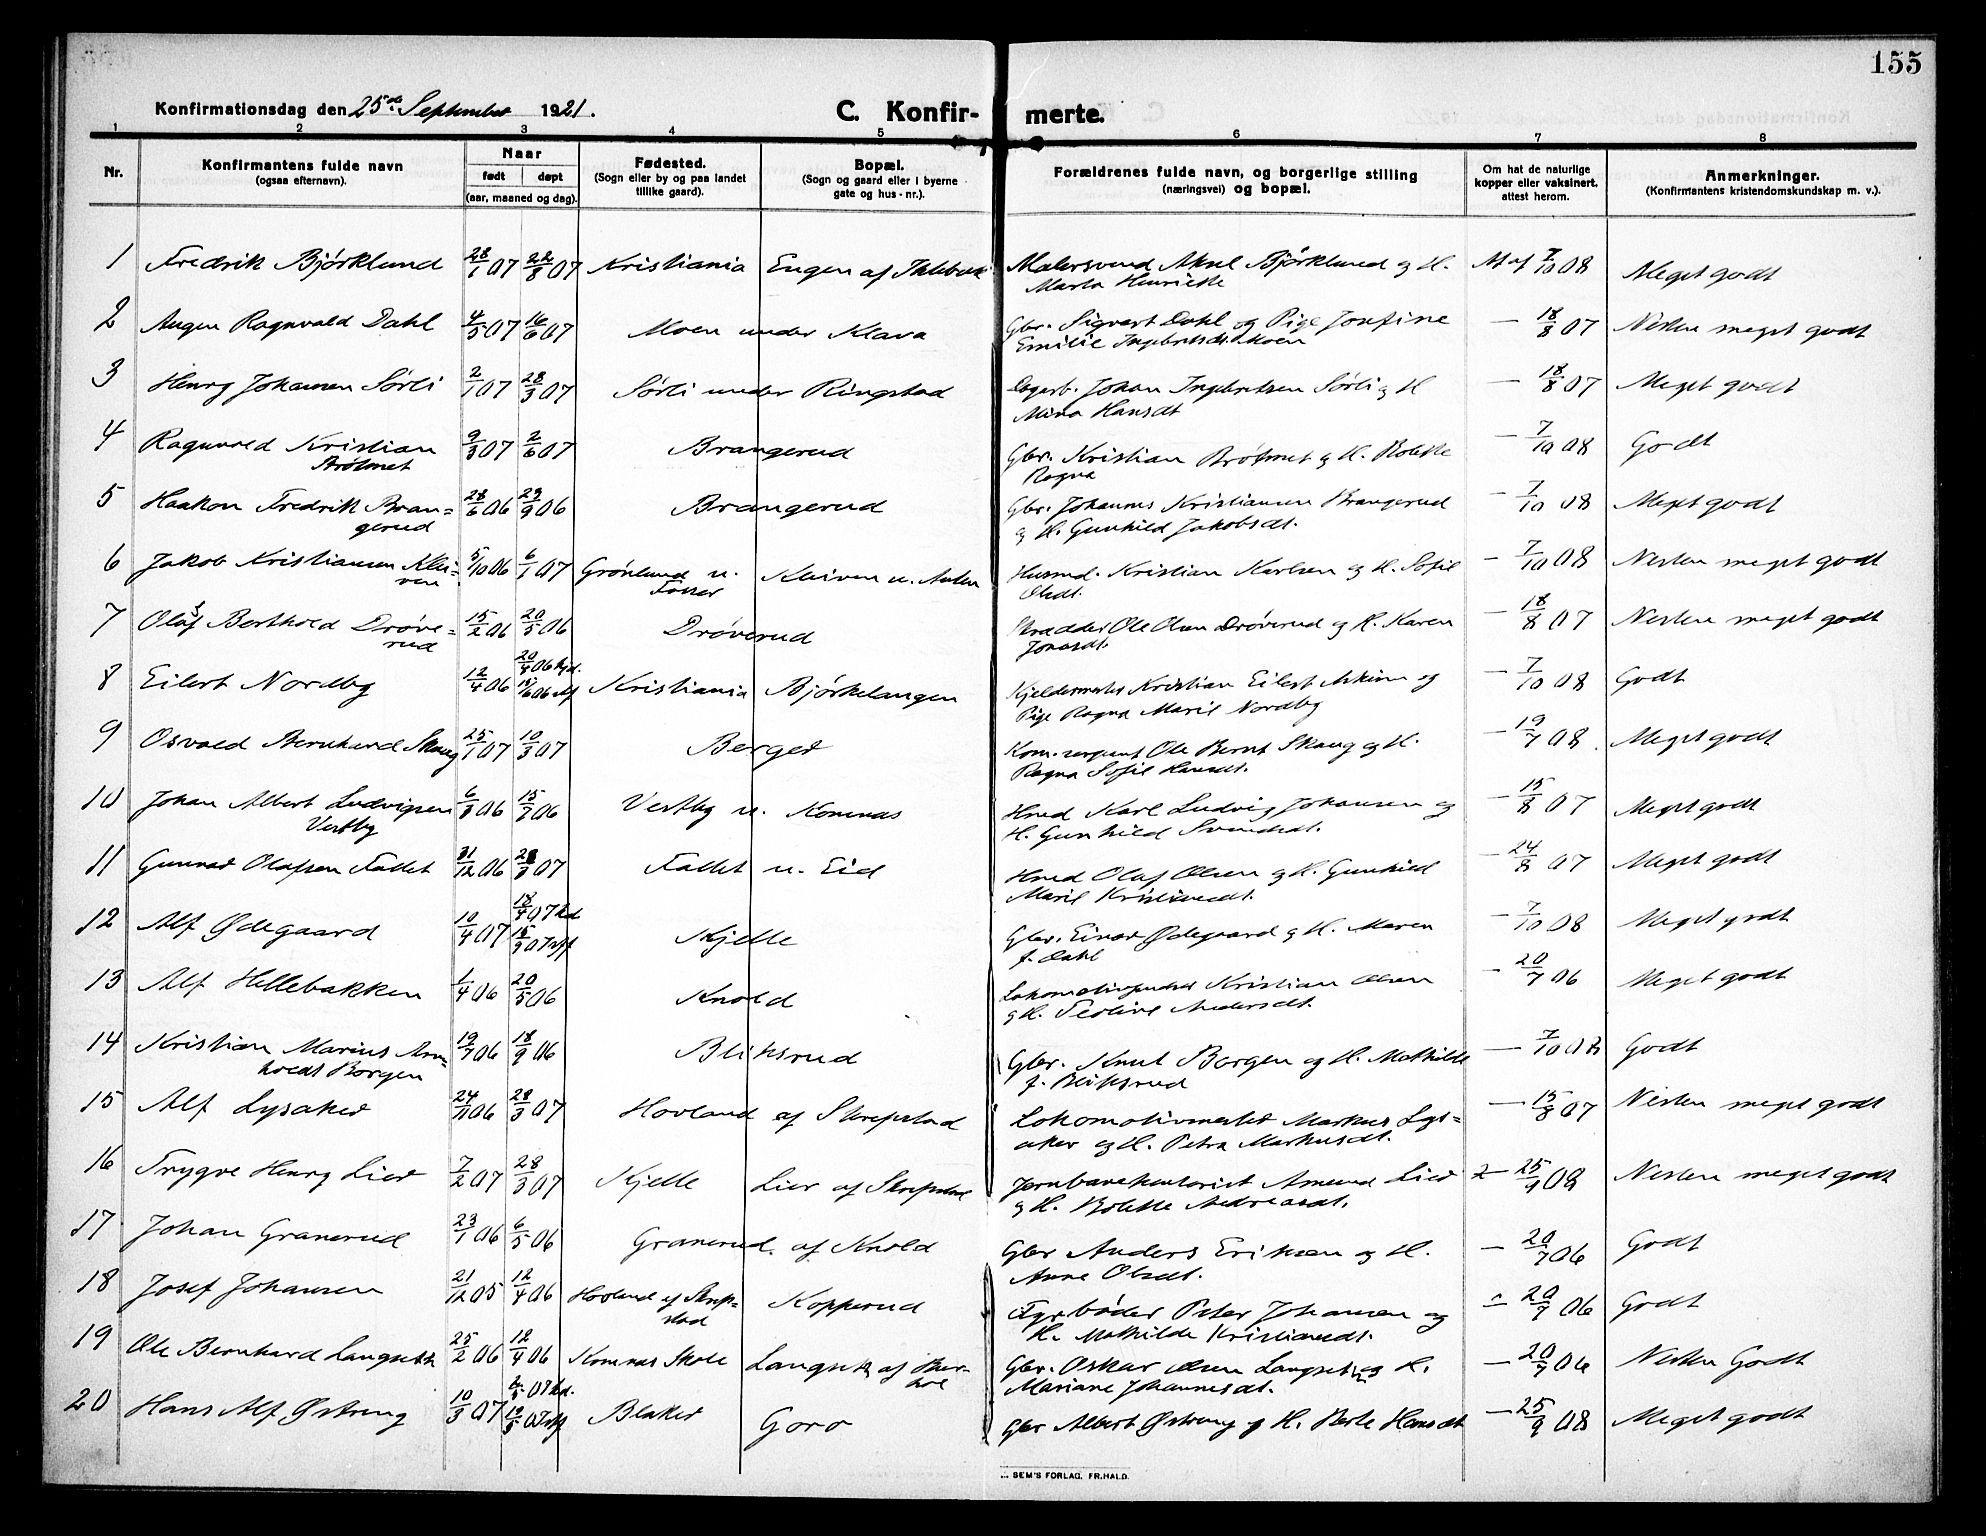 155
Konfirmationsdag den 25de September 1921.
C. Konfir-
merte.
1 2 3 4 5 6 7 8
Nr.
Konfirmantens fulde navn
(ogsaa efternavn).
Naar
født døpt
(aar, maaned og dag).
Fødested.
(Sogn eller by og paa landet
tillike gaard).
Bopæl.
(Sogn og gaard eller i byerne
gate og hus-nr.).
Forældrenes fulde navn, og borgerlige stilling
(næringsvei) og bopæl.
Om hat de naturlige
kopper eller vaksinert.
attest herom.
Anmerkninger.
(Konfirmantens kristendomskundskap m. v.).
1 Fredrik Bjørklund 28/1 07 22/8 07 Kristiania Eugen af Malersvend Aksel Bjørklund og H. At af 7/10 08 Meget godt
Marta Henriette
2 Augen Ragnvald Dahl 4/5 07 16/6 07 Moen under Klava Gbr. Sigvart Dahl og Pige Josfine — 18/8 07 Nesten meget godt
Emilie Ingebretsdt. Moen
3 Henry Johansen Sørli 2/1 07 28/3 07 Sørli under Ringstad Johan Ingebretsen Sørli og H — 18/8 07 Meget godt
Mina Hansdt
4 Ragnvald Kristian 9/3 07 2/6 07 Brangerud Gbr. Kristian Brøtmet og H. Bolette — 7/10 08 Godt
Brøtmet
Ragna
5 Haakon Fredrik Bran- 28/6 06 29/9 06 Brangerud Gbr. Johannes Kristiansen Brangerud — 7/10 08 Meget godt
gerud
og H. Gunhild Jakobsdt.
6 Jakob Kristiansen Klei- 5/10 06 6/1 07 Grønlund u. Kleiven u. Husmd. Kristian Karlsen og H. Sofie — 7/10 08 Nesten meget godt
ven
Fosser
Olsdt.
7 Olaf Berthold Drøve- 15/2 06 20/5 06 Drøverud Skrædder Ole Olsen Drøverud og H. Karen — 18/8 07 Nesten meget godt
rud
Jonasdt.
8 Eilert Nordby 12/4 06 20/4 06 hjd. Kristiania Bjørkelangen Kjeldermester Kristian Eilert Askim og — 7/10 08 Godt
Pige Ragna Marie Nordby
9 Osvald Bernhard Skaug 25/1 07 10/3 07 Berget Kom.sergeant Ole Bernt Skaug og H. — 19/7 08. Meget godt
Ragna Sofie Hansdt.
10 Johan Albert Ludvigsen 6/3 06 15/7 06 Vestby u. Komnæs Hmd Karl Ludvig Johansen og — 15/8 07 Meget godt
Vestby
H. Gunhild Svendsdt.
11 Gunnar Olafsen Fallet 31/12 06 28/3 07 Fallet u. Eid Hmd Olaf Olsen og H. Gunhild — 24/8 07 Meget godt
Marie Kristiansdt.
12 Alf Ødegaard 10/4 07 18/4 07 hd Kjelle Gbr. Einar Ødegaard og H. Maren — 7/10 08 Meget godt
f. Dahl
13 Alf Hellebakken 1/4 06 20/5 06 Knold Lokomotivpudser Kristian Olsen — 20/7 06 Meget godt
og H. Teoline Andersdt.
14 Kristian Marius Arn- 19/7 06 18/9 06 Bliksrud Gbr. Knut Borgen og H. Mathilde — 7/10 08 Godt
holdt Borgen
f. Bliksrud
15 Alf Lysaker 24/11 06 28/3 07 Hovland af Skrepstad Lokomotivmester Markus Lys- — 15/8 07 Nesten meget godt
aker og H. Petra Markusdt.
16 Trygve Henry Lier 7/2 07 28/3 07 Kjelle Lier af Skrepstad Jernbanekontorist Amund Lier — 25/9 08 Nesten meget godt
og H. Bolette Andreasdt.
17 Johan Granerud 23/1 06 6/5 06 Granerud af Knold Gbr Anders Eriksen og H. — 20/7 06 Godt
Anne Olsdt.
18 Josef Johansen 21/12 05 12/4 06 Hovland af Skrep- Kopperud Fyrbøder Peter Johansen og 20/7 06 Godt
stad
H. Mathilde Kristiansdt.
19 Ole Bernhard Langseth 25/2 06 12/4 06 Komnæs Skole Langseth af Gbr. Oskar Olsen Langseth og H. — 20/7 06 Nesten Godt
Mariane Johannesdt.
20 Hans Alf Østreng 10/3 07 Blaker Goro Gbr Albert Østreng og H. Berte Hansdt — 25/9 08 Meget godt
SEM'S FORLAG. FR.HALD.